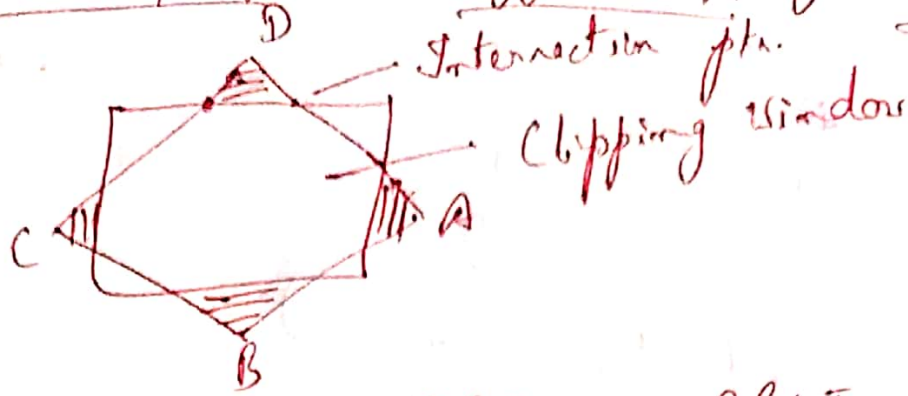 D
Intersection pts.
Clipping Window
A
C
B